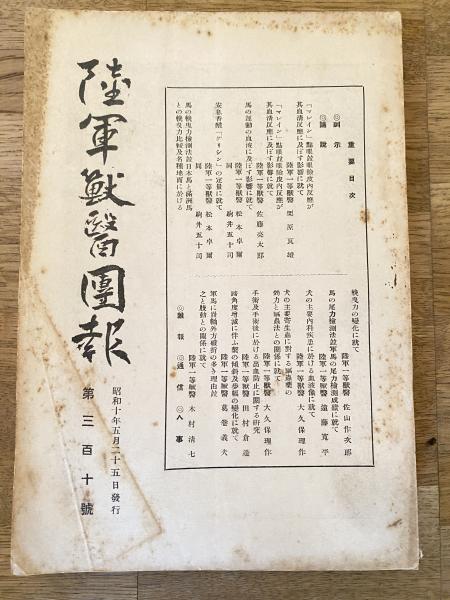 陸軍獸醫團報
第三百十號
昭和十年五月二十五日發行
重要目次
◎訓示
◎論說
「マレイン」點眼並眼瞼皮內反應が
其血清反應に及ぼす影響に就て
陸軍一等獸醫 栗原眞雄
「マレイン」點眼並眼瞼皮內反應が
其血清反應に及ぼす影響に就て
陸軍一等獸醫 佐藤亮太郎
馬の運動の血液に及ぼす影響に就て
陸軍一等獸醫 松本卓爾
同 駒井五十司
安息香酸「グリシン」の定量に就て
陸軍一等獸醫 松本卓爾
同 駒井五十司
馬の輓曳力檢測法並日本馬と滿洲馬
との輓曳力比較及各種地面に於ける
輓曳力の變化に就て
陸軍一等獸醫 佐山作次郎
馬の尾力檢測法並軍馬の尾力檢測成績に就て
陸軍一等獸醫 遠藤寬平
犬の主要內科疾患に於ける血液像に就て
陸軍一等獸醫 大久保理作
犬の主要寄生蟲に對する驅蟲藥の
効力と驅蟲法との關係に就て
陸軍一等獸醫 大久保理作
手術及手術後に於ける出血防止に關する硏究
陸軍一等獸醫 田村倉造
蹄角度增減に伴ふ繫の傾斜及步幅の變化に就て
陸軍一等獸醫 葛卷義夫
軍馬に前軸外方破折の多き理由並
之と肢動との關係に就て
陸軍一等獸醫 木村清七
◎雜報 ◎通信 ◎人事